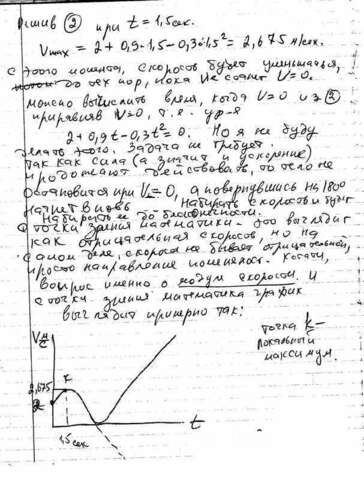 Решив ② при t = 1,5 сек.
Vmax = 2 + 0,9·1,5 – 0,3·1,5² = 2,675 м/сек.
с этого момента, скорость будет уменьшаться,
до тех пор, пока не станет V=0.
можно вычислить время, когда V=0 из ②
приравняв V=0, т.е. ур-я
2+0,9t-0,3t²=0. Но я не буду
делать этого. Задача не требует.
Так как сила (а значит и ускорение)
продолжают действовать, то тело не
остановится при V=0, а повернувшись на 180°
начнет вновь набирать скорость и будет
набирать её до бесконечности.
с точки зрения математики - это выглядит
как отрицательная скорость, но на
самом деле, скорость не бывает отрицательной,
просто направление поменялось. Кстати,
вопрос именно о модуле скорости. И
с точки зрения математика график
выглядит примерно так:
точка К-
локальный
максимум.
V м/с
2,675
К
2
1,5 сек
t